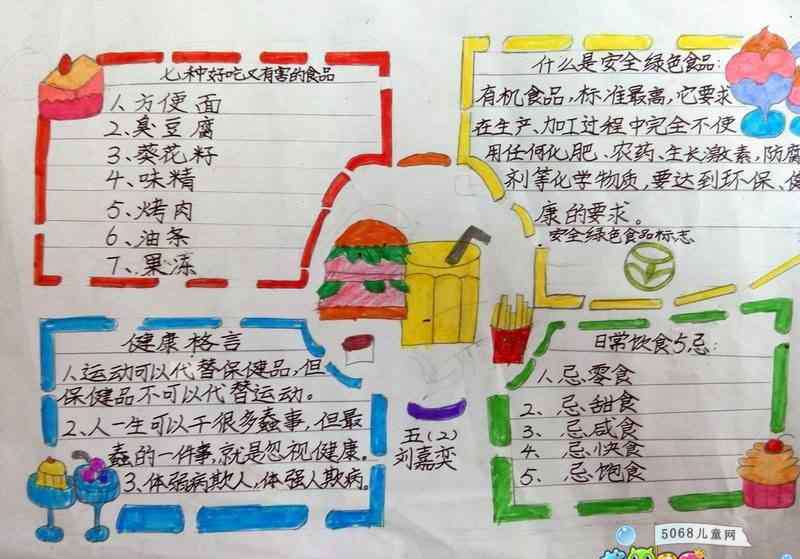 七种好吃又有害的食品
1、方便面
2、臭豆腐
3、葵花籽
4、味精
5、烤肉
6、油条
7、果冻
什么是安全绿色食品:
有机食品,标准最高,它要求
在生产、加工过程中完全不使
用任何化肥、农药、生长激素,防腐
剂等化学物质,要达到环保、健
康的要求。
安全绿色食品标志
健康格言
1、运动可以代替保健品,但
保健品不可以代替运动。
2、人一生可以干很多蠢事,但最
蠢的一件事,就是忽视健康。
3、体弱病欺人,体强人欺病。
五(2)
刘嘉奕
日常饮食5忌:
1、忌零食
2、忌甜食
3、忌咸食
4、忌快食
5、忌饱食
5068儿童网